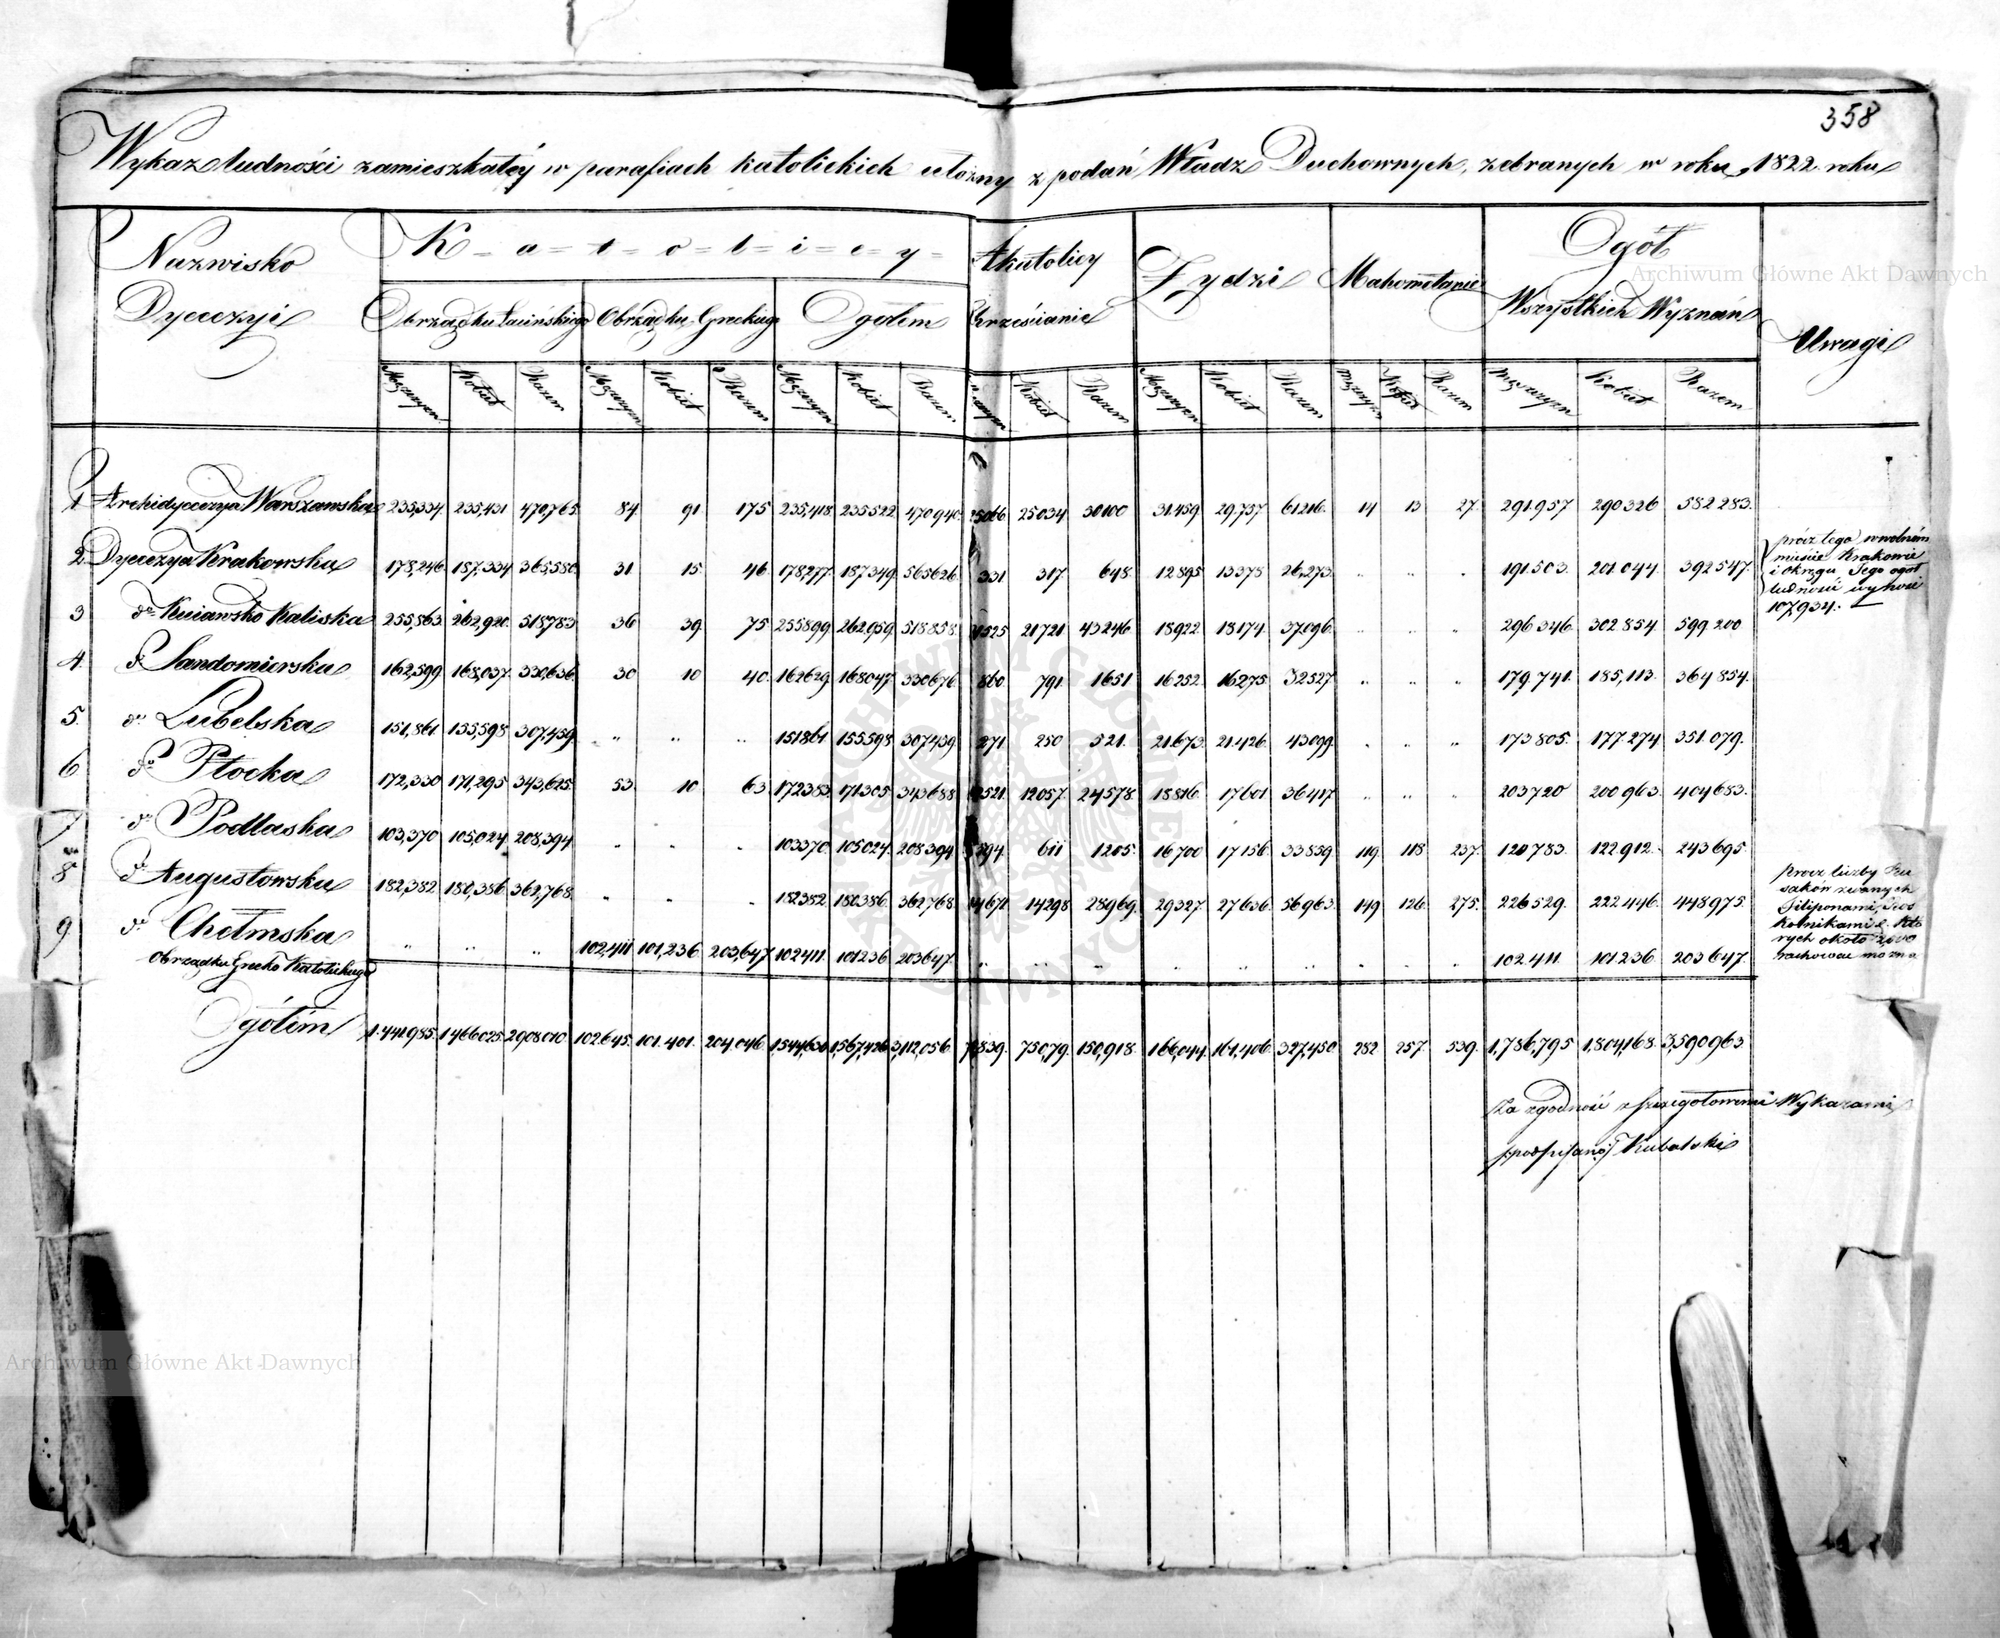 358
Wykaz ludności zamieszkałéy w parafiach katolickich ułożony z podań Władz Duchownych, zebranych w roku 1822 roku
Nazwisko Dyecezyi
K=a=t=o=l=i=c=y=
Akatolicy Chrześcianie
Żydzi
Mahometanie
Ogół Wszystkich Wyznań
Uwagi
Obrządku Łacińskiego Obrządku Greckiego Ogołem
Męzczyzn Kobiet Razem Męzczyzn Kobiet Razem Męzczyzn Kobiet Razem Kobiet Razem Męzczyzn Kobiet Razem Męzczyzn Kobiet Razem Męzczyzn Kobiet Razem
1 Archidyecezya Warszawska 235,334 235,431 470,765 84 91 175 235,418 235522 470940 25034 50100 31.459 29.757 61216 14 13 27 291.957 290326 582283
2 Dyecezya Krakowska 178,246 187,334 365,580 31 15 46 178,277 187349 365626 331 317 648 12895 13378 26,273 " " " 191.503 201044 392547
prócz tego w wolném mieście Krakowie i okręgu Jego ogół ludności wynosi 107,934.
3 do Kuiawsko Kaliska 255,863 262,920 518,783 36 39 75 255899 262,959 518858 21721 43246 18922 18174 37,096 " " " 296346 302854 599200
4. do Sandomierska 162,599 168,037 330,636 30 10 40 162629 168047 330676 860 791 1651 16252 16275 32527 " " " 179,741 185,113 364854
5. do Lubelska 151,861 155,598 307,459 " " " 151861 155598 307459 271 250 521 21.673 21.426 43099 " " " 173805 177.274 351.079
6 do Płocka 172,330 171,295 343,625 53 10 63 172383 171305 343688 12057 24578 18816 17601 36417 " " " 203720 200963 404683
7 do Podlaska 103,370 105,024 208,394 " " " 103370 105024 208394 594 611 1205 16700 17156 33859 119 118 237 120783 122912 243695
8 do Augustowska 182,382 180,386 362,768 " " " 182382 180386 362768 14671 14298 28969 29327 27636 56963 149 126 275 226529 222446 448975
prócz liczby zwanych Filiponami, Kolnikami z Któ rych około 2000 rachować można
9 do Chełmska " " " 102,411 101,236 203,647 102411 101236 203647 " " " " " " " " " 102411 101236 203647
Obrządku Grecko Katolickiego
Ogółem 1.441985 1466025 2908010 102645 101.401 204,046 1,544,630 1,567,426 3,112,056 75,079 150,918 166,044 161,406 327,450 282 257 539 1,786,795 1,804,168 3,590963
Za zgodność z szczegołowemi Wykazami
podpisano Kubalski
Archiwum Główne Akt Dawnych
Archiwum Główne Akt Dawnych
ARCHIWUM GŁÓWNE AKT DAWNYCH